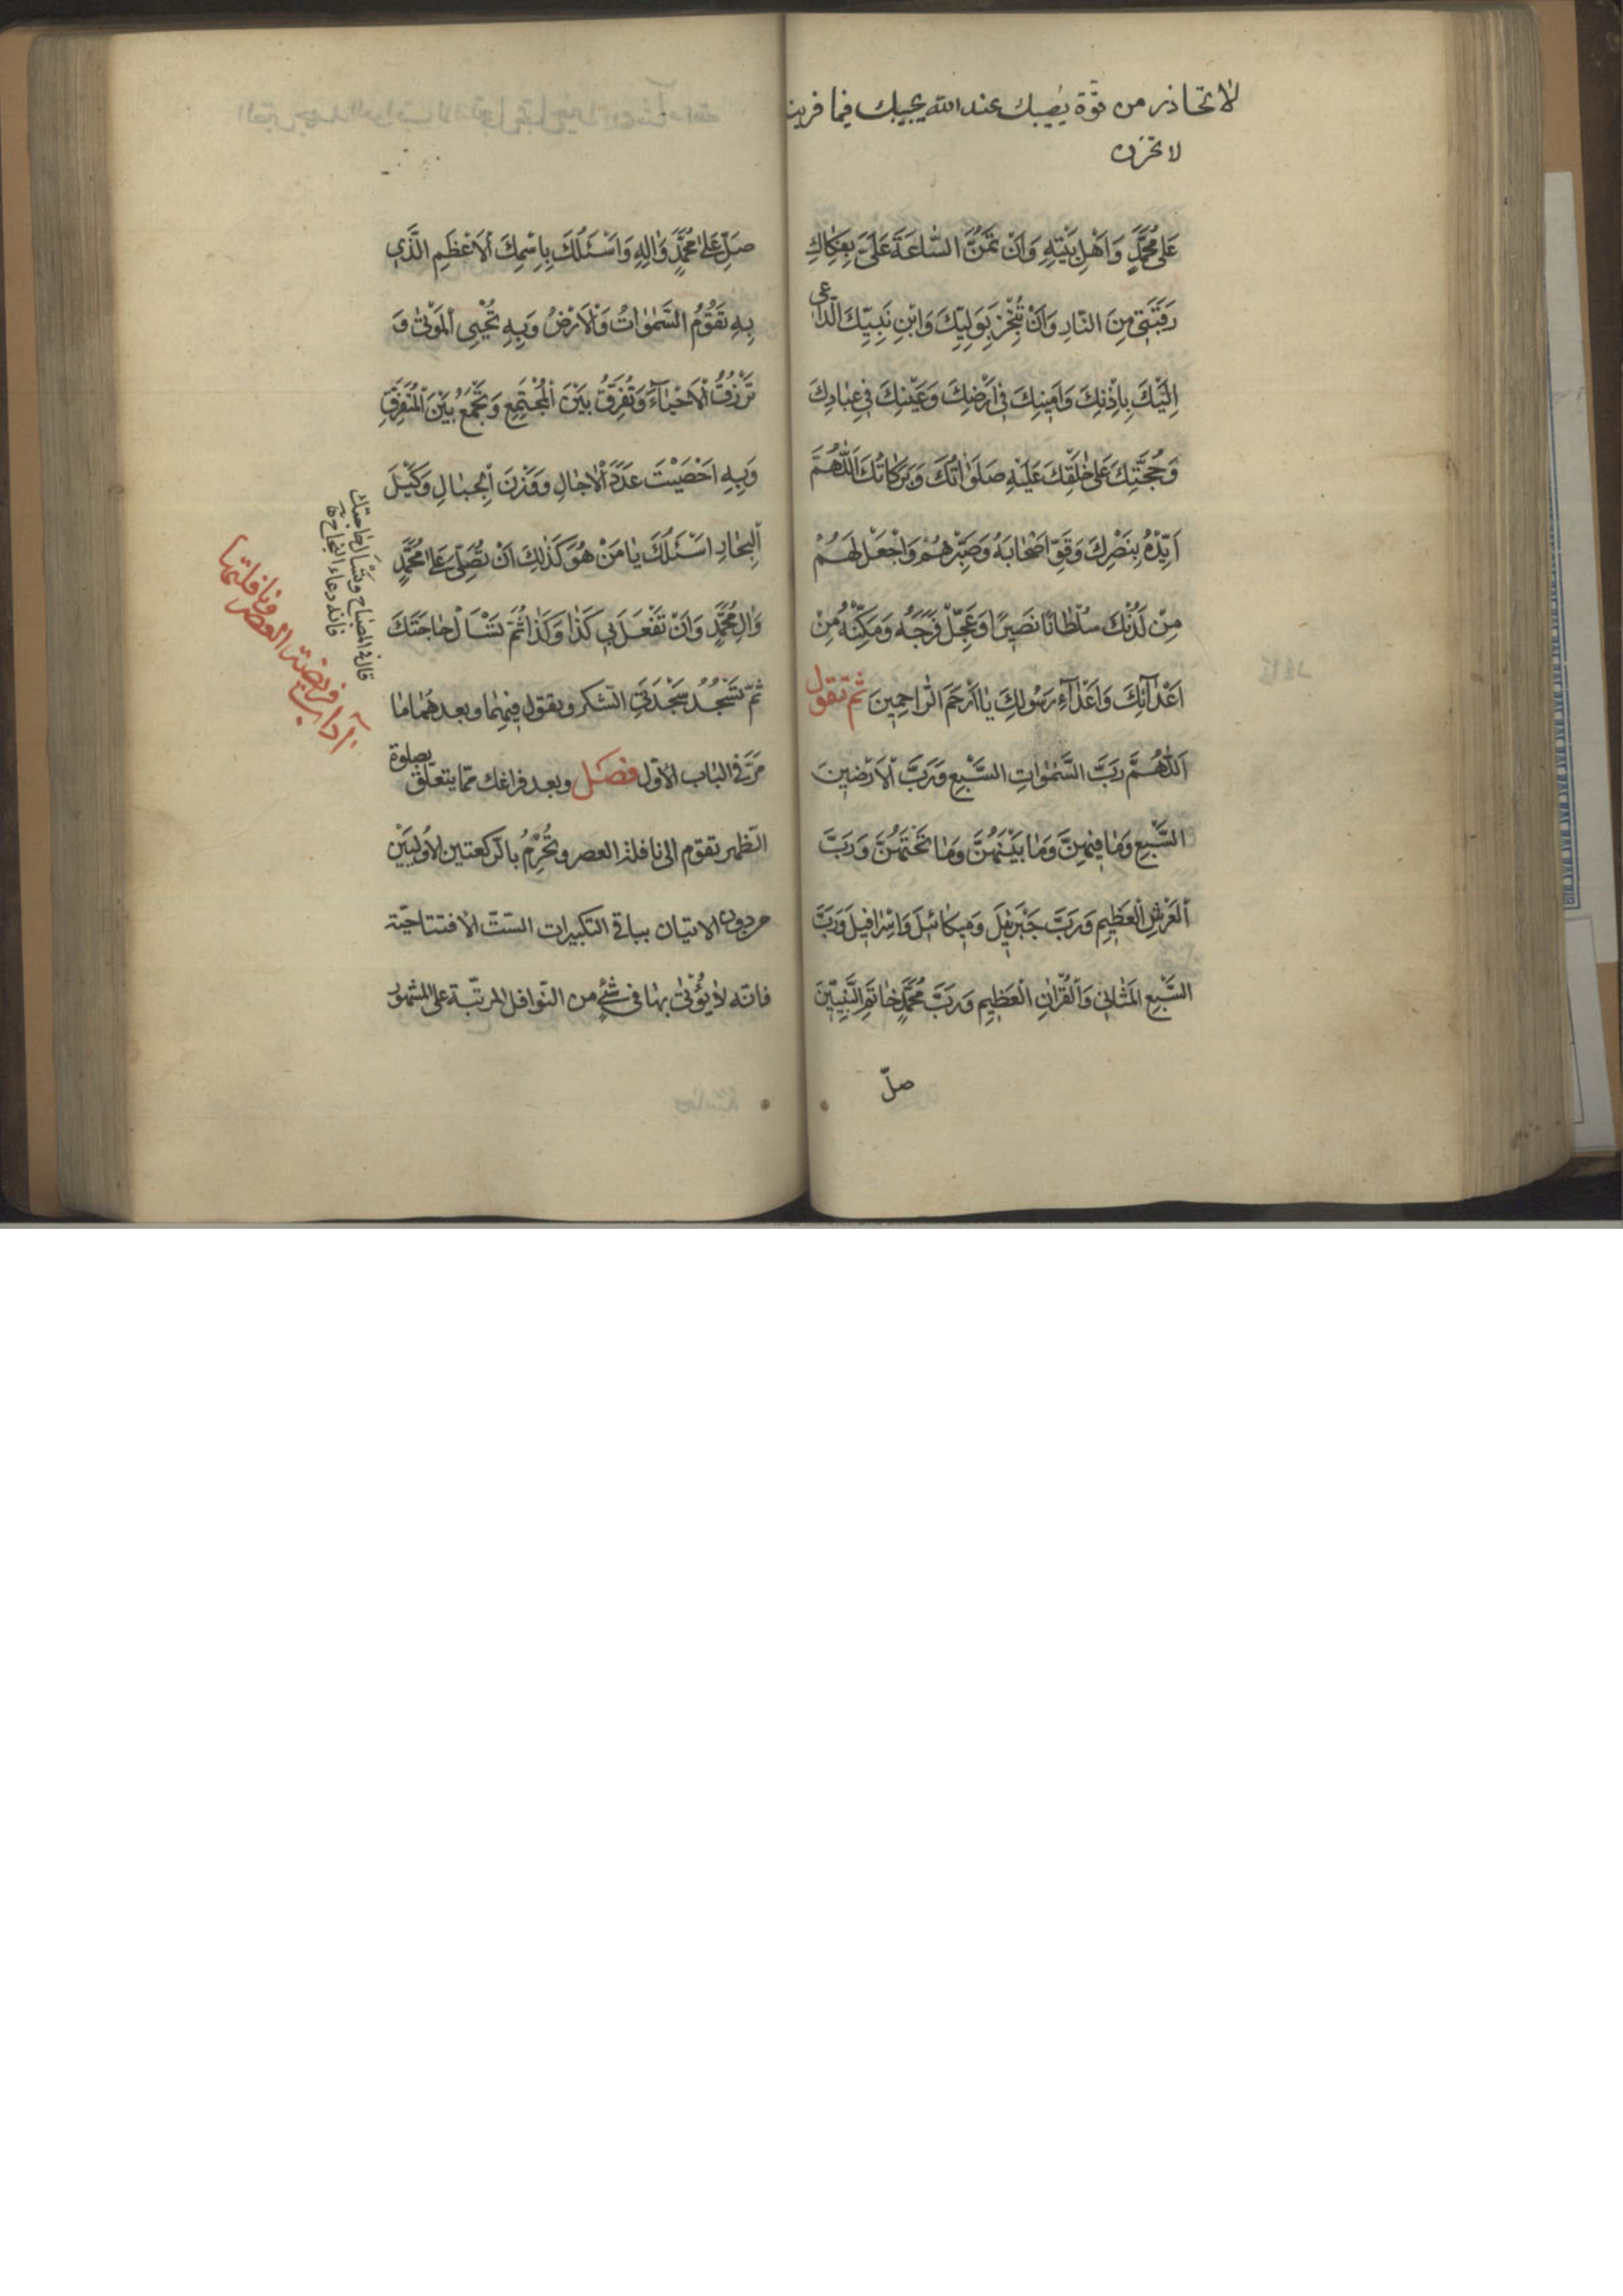 لا تحاذر من قوة يصيبك عند الله يجيبك فيما
لا تحزن
عَلىٰ مُحَمَّدٍ وَاَهْلِ بَيْتِهِ وَاَنْ تَمُنَّ السّاعَةَ عَلَىَّ بِفَكاكِ
رَقَبَتى مِنَ النّارِ وَاَنْ تُنْجِزَ بِوَلِيِّكَ وَابْنِ نَبِيِّكَ الدّاعى
اِلَيْكَ بِاِذْنِكَ وَاَمينِكَ فى اَرْضِكَ وَعَيْنِكَ فى عِبادِكَ
وَحُجَّتِكَ عَلىٰ خَلْقِكَ عَلَيْهِ صَلَواتُكَ وَبَرَكاتُكَ اَللّٰهُمَّ
اَيِّدْهُ بِنَصْرِكَ وَقَوِّ اَصْحابَهُ وَصَبِّرْهُمْ وَاجْعَلْ لَهُمْ
مِنْ لَدُنْكَ سُلْطانًا نَصيرًا وَعَجِّلْ فَرَجَهُ وَمَكِّنْهُ مِنْ
اَعْدآئِكَ وَاَعْدآءِ رَسُولِكَ يا اَرْحَمَ الرّاحِمينَ ثم تقول
اَللّٰهُمَّ رَبَّ السَّمٰواتِ السَّبْعِ وَرَبَّ الْاَرَضينَ
السَّبْعِ وَما فيهِنَّ وَما بَيْنَهُنَّ وَما تَحْتَهُنَّ وَرَبَّ
الْعَرْشِ الْعَظيمِ وَرَبَّ جَبْرَئيلَ وَميكائيلَ وَاِسْرافيلَ وَرَبَّ
السَّبْعِ الْمَثانى وَالْقُرْاٰنِ الْعَظيمِ وَرَبَّ مُحَمَّدٍ خاتَمِ النَّبِيّينَ
صلّ
صَلِّ عَلىٰ مُحَمَّدٍ وَاٰلِهِ وَاَسْئَلُكَ بِاسْمِكَ الْاَعْظَمِ الَّذى
بِهِ تَقُومُ السَّمٰواتُ وَالْاَرْضُ وَبِهِ تُحْيِى الْمَوْتىٰ وَ
تَرْزُقُ الْاَحْيآءَ وَتُفَرِّقُ بَيْنَ الْمُجْتَمِعِ وَتَجْمَعُ بَيْنَ الْمُتَفَرِّقِ
وَبِهِ اَحْصَيْتَ عَدَدَ الْاٰجالِ وَوَزْنَ الْجِبالِ وَكَيْلَ
الْبِحارِ اَسْئَلُكَ يا مَنْ هُوَ كَذٰلِكَ اَنْ تُصَلِّىَ عَلىٰ مُحَمَّدٍ
وَاٰلِ مُحَمَّدٍ وَاَنْ تَفْعَلَ بى كَذا وَكَذا ثُمَّ تَسْأَلْ حاجَتَكَ
ثمّ تَسْجُدُ سَجْدَتَىِ الشكر وتقول فيهما وبعدهما ما
مَرَّ فى الباب الاوّل فصل وبعد فراغك ممّا يتعلّق بصلوة
الظّهر تقوم الى نافلة العصر وتُحْرِمُ بالرّكعتين الاُولَيَيْنِ
من دون الاتيان بباقى التكبيرات السّتّ الافتتاحيّة
فانّه لا يُؤْتىٰ بها فى شئٍ من النّوافل المرتّبة على المشهور
قال فى المصباح وتَسْأَل حاجتك
فانه دعاء النجاح
آداب فريضة العصر ونافلتها